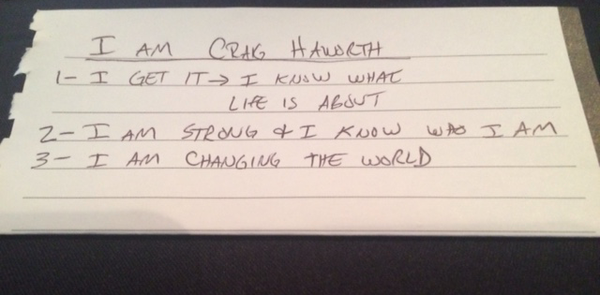 I AM CRAIG HAWORTH
1- I GET IT → I KNOW WHAT
LIFE IS ABOUT
2- I AM STRONG & I KNOW WHO I AM
3- I AM CHANGING THE WORLD